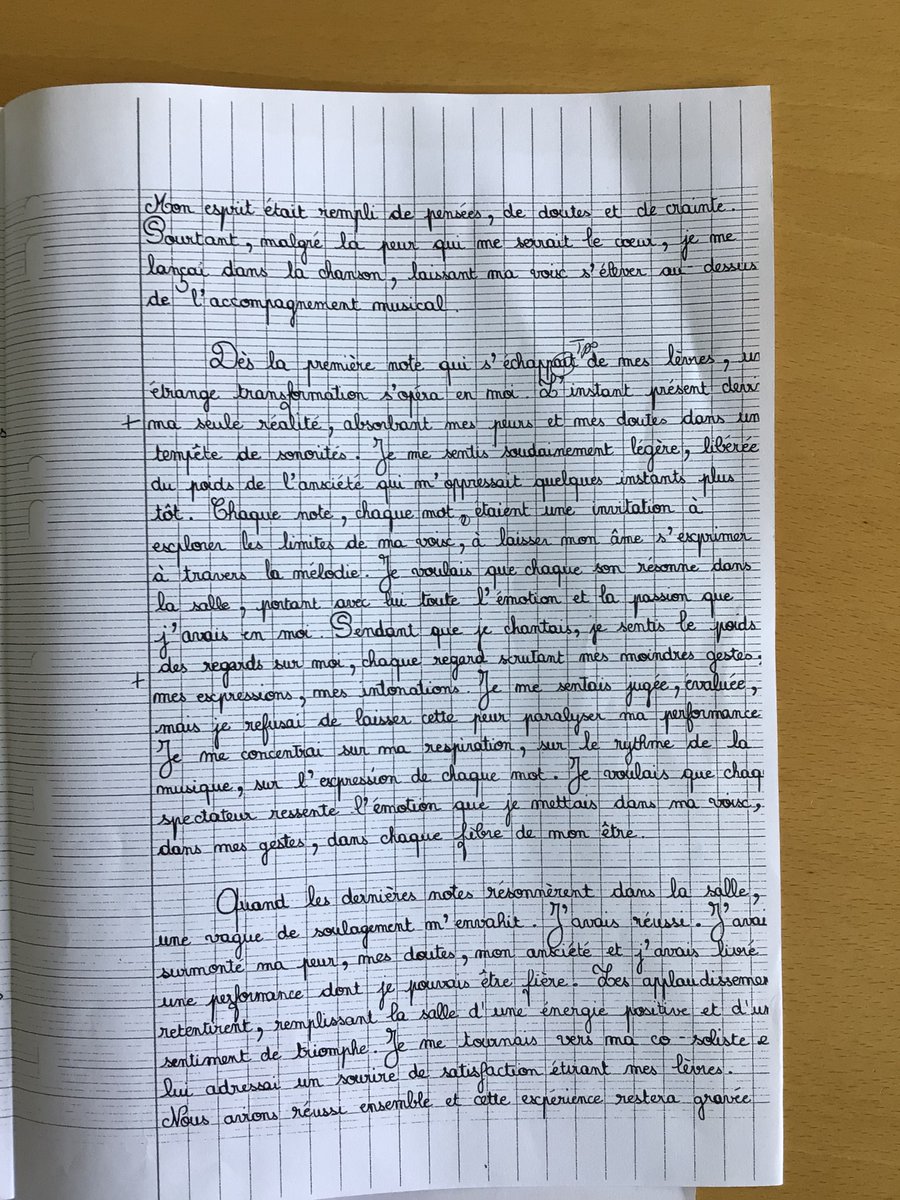 Mon esprit était rempli de pensées, de doutes et de crainte.
Pourtant, malgré la peur qui me serrait le cœur, je me
lançai dans la chanson, laissant ma voix s'élever au-dessus
de l'accompagnement musical.
Dès la première note qui s'échappait de mes lèvres, un
étrange transformation s'opéra en moi. L'instant présent devi
+ ma seule réalité, absorbant mes peurs et mes doutes dans un
tempête de sonorités. Je me sentis soudainement légère, libérée
du poids de l'anxiété qui m'oppressait quelques instants plus
tôt. Chaque note, chaque mot, étaient une invitation à
explorer les limites de ma voix, à laisser mon âme s'exprimer
à travers la mélodie. Je voulais que chaque son résonne dans
la salle, portant avec lui toute l'émotion et la passion que
j'avais en moi. Pendant que je chantais, je sentis le poids
des regards sur moi, chaque regard scrutant mes moindres gestes,
+ mes expressions, mes intonations. Je me sentais jugée, évaluée,
mais je refusai de laisser cette peur paralyser ma performance
Je me concentrai sur ma respiration, sur le rythme de la
musique, sur l'expression de chaque mot. Je voulais que chaq
spectateur ressente l'émotion que je mettais dans ma voix,
dans mes gestes, dans chaque fibre de mon être.
Quand les dernières notes résonnèrent dans la salle,
une vague de soulagement m'envahit. J'avais réussie. J'avai
surmonté ma peur, mes doutes, mon anxiété et j'avais livré
une performance dont je pouvais être fière. Les applaudissemen
retentirent, remplissant la salle d'une énergie positive et d'un
sentiment de triomphe. Je me tournais vers ma co-soliste e
lui adressai un sourire de satisfaction étirant mes lèvres.
Nous avions réussi ensemble et cette expérience restera gravée